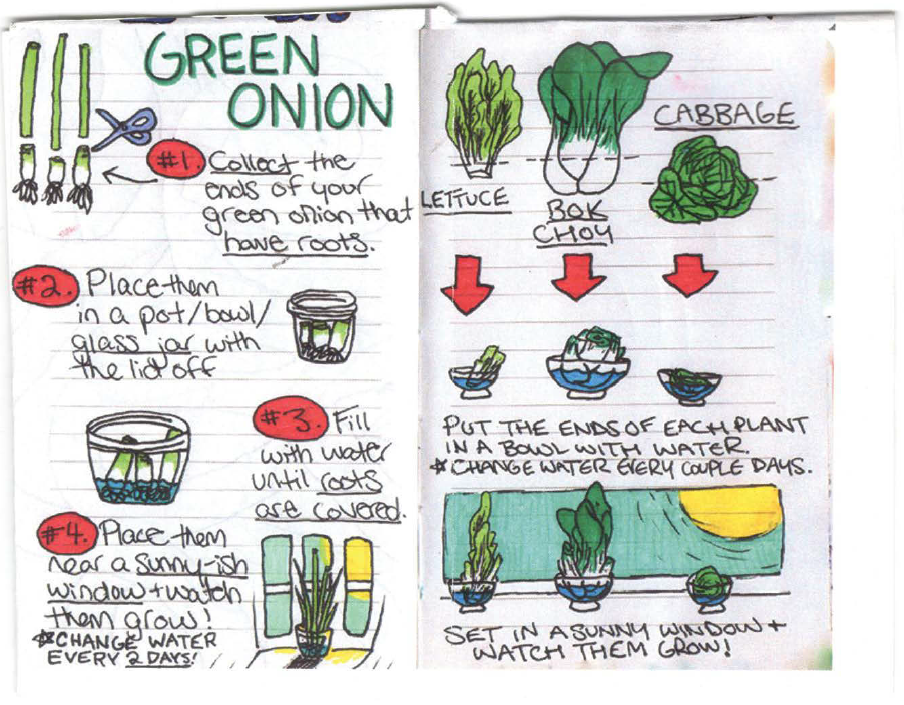 GREEN
ONION
#1. Collect the
ends of your
green onion that
have roots.
#2. Place them
in a pot/bowl/
glass jar with
the lid off
#3. Fill
with water
until roots
are covered.
#4. Place them
near a sunny-ish
window + watch
them grow!
*CHANGE WATER
EVERY 2 DAYS!
LETTUCE
BOK
CHOY
CABBAGE
PUT THE ENDS OF EACH PLANT
IN A BOWL WITH WATER.
*CHANGE WATER EVERY COUPLE DAYS.
SET IN A SUNNY WINDOW +
WATCH THEM GROW!